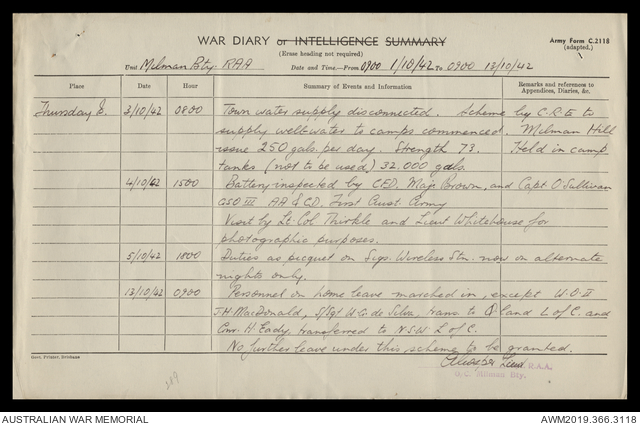 WAR DIARY or INTELLIGENCE SUMMARY
Army Form C.2118
(Erase heading not required)
(adapted.)
Unit Milman Bty. RAA Date and Time—From 0900 1/10/42 To 0900 13/10/42
Place Date Hour Summary of Events and Information Remarks and references to Appendices, Diaries, &c.
Thursday I. 3/10/42 0800 Town water supply disconnected. Scheme by C.R.E to
supply well-water to camps commenced. Milman Hill
issue 250 gals. per day. Strength 73. Held in camp
tanks (not to be used) 32.000 gals.
4/10/42 1500 Battery inspected by CFD. Maj. Brown, and Capt. O'Sullivan
GSO III AA & CD. First Aust. Army
Visit by Lt. Col Thirkle and Lieut Whitehouse for
photographic purposes.
5/10/42 1800 Duties as picquet on Sigs. Wireless Stn. now on alternate
nights only.
13/10/42 0900 Personnel on home leave marched in, except W.O.II
J.H. MacDonald, S/Sgt W.G. de Silva, trans to Q'land L of C. and
Gnr. H. Eady, transferred to N.S.W. L of C.
No further leave under this scheme to be granted.
Lieut R.A.A.
O.C. Milman Bty.
Govt. Printer, Brisbane
AUSTRALIAN WAR MEMORIAL
AWM2019.366.3118